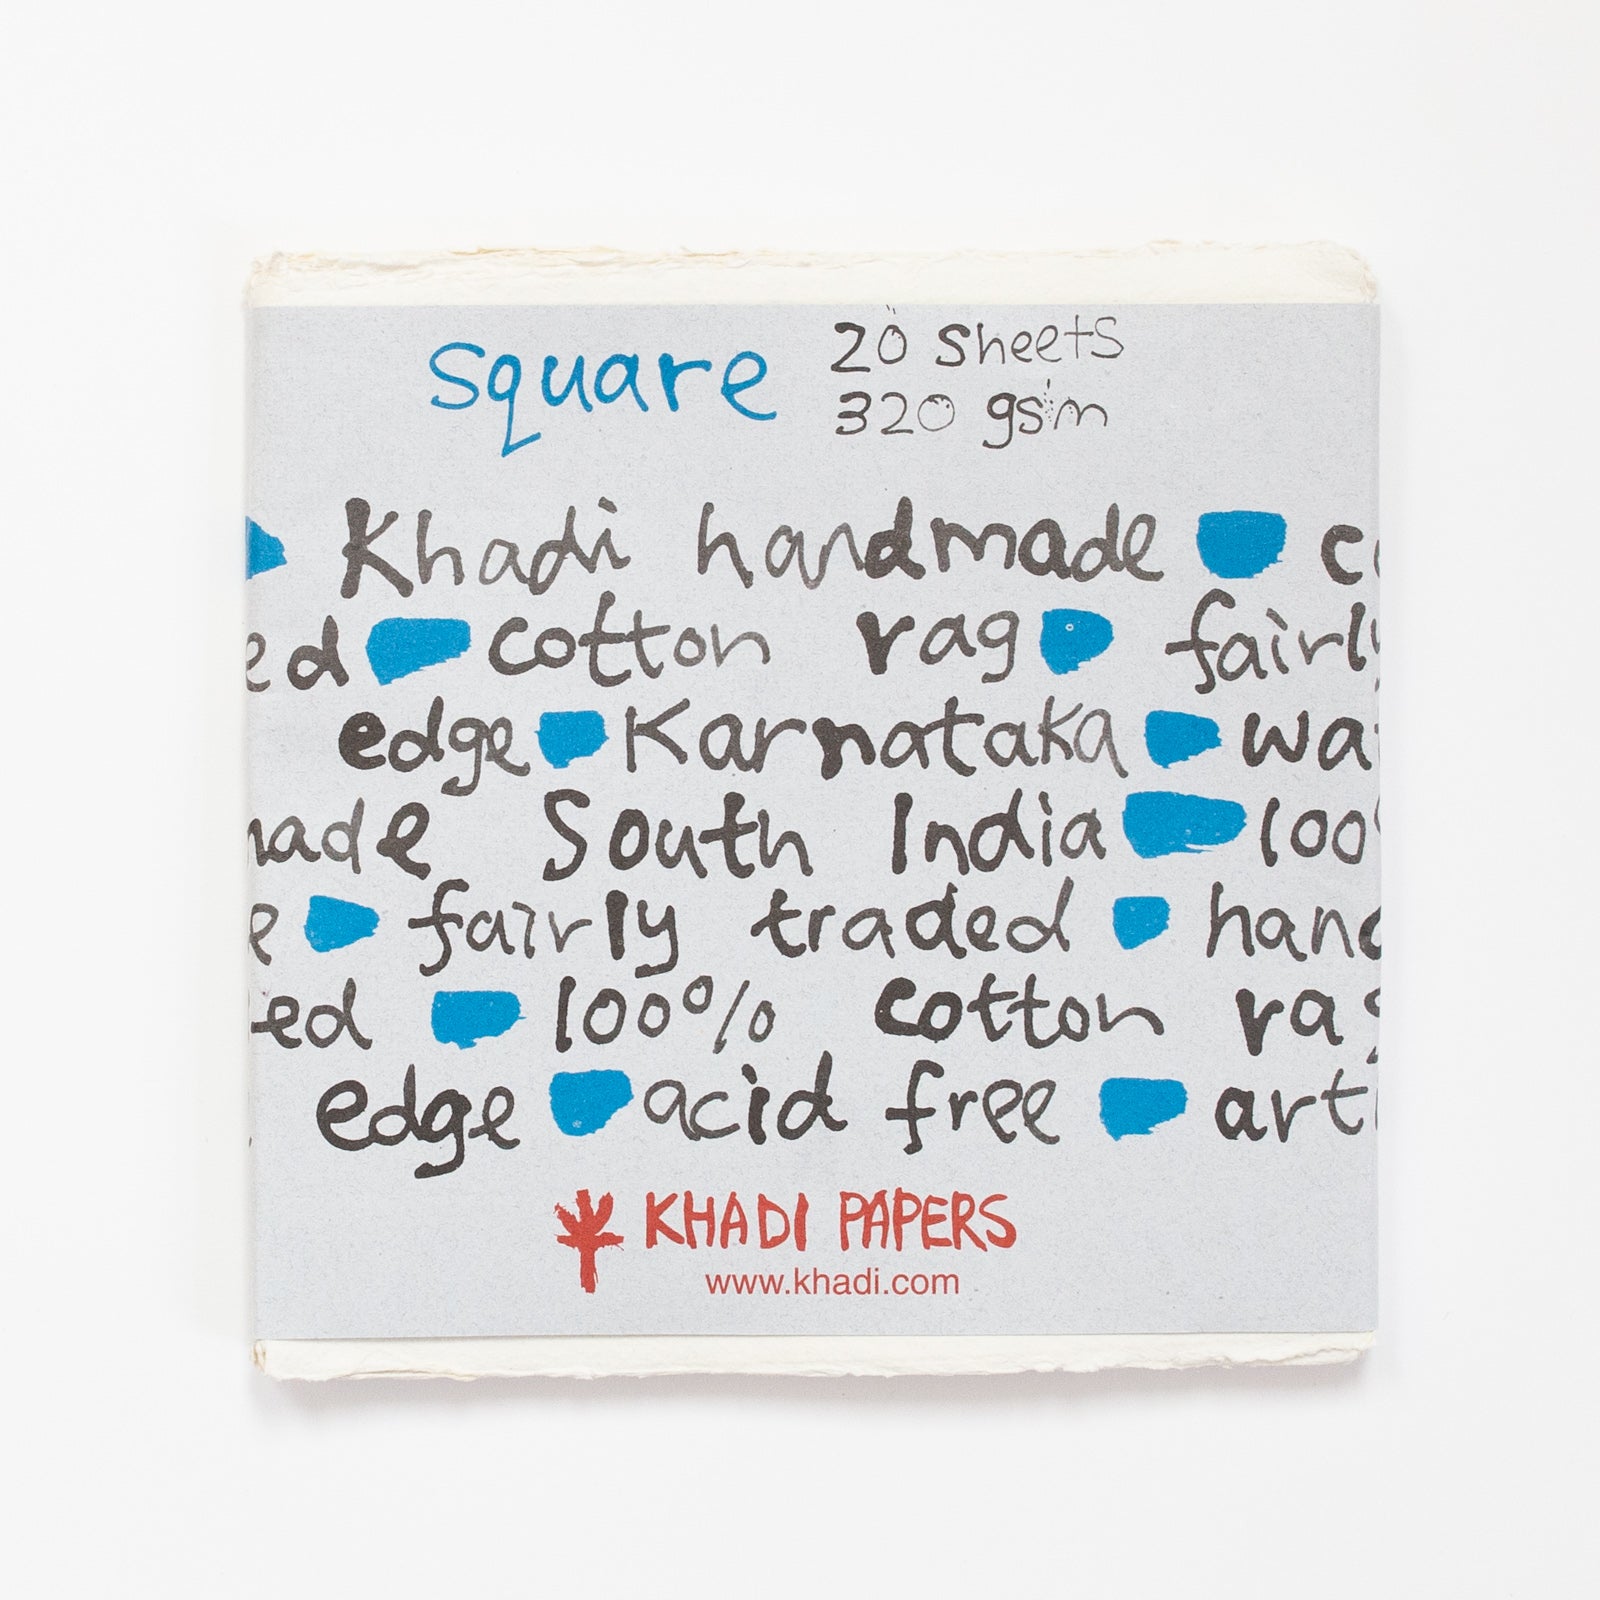 square
20 sheets
320 gsm
Khadi handmade
cotton rag fairly
edge Karnataka
South India 100%
fairly traded
100% cotton rag
edge acid free
KHADI PAPERS
www.khadi.com